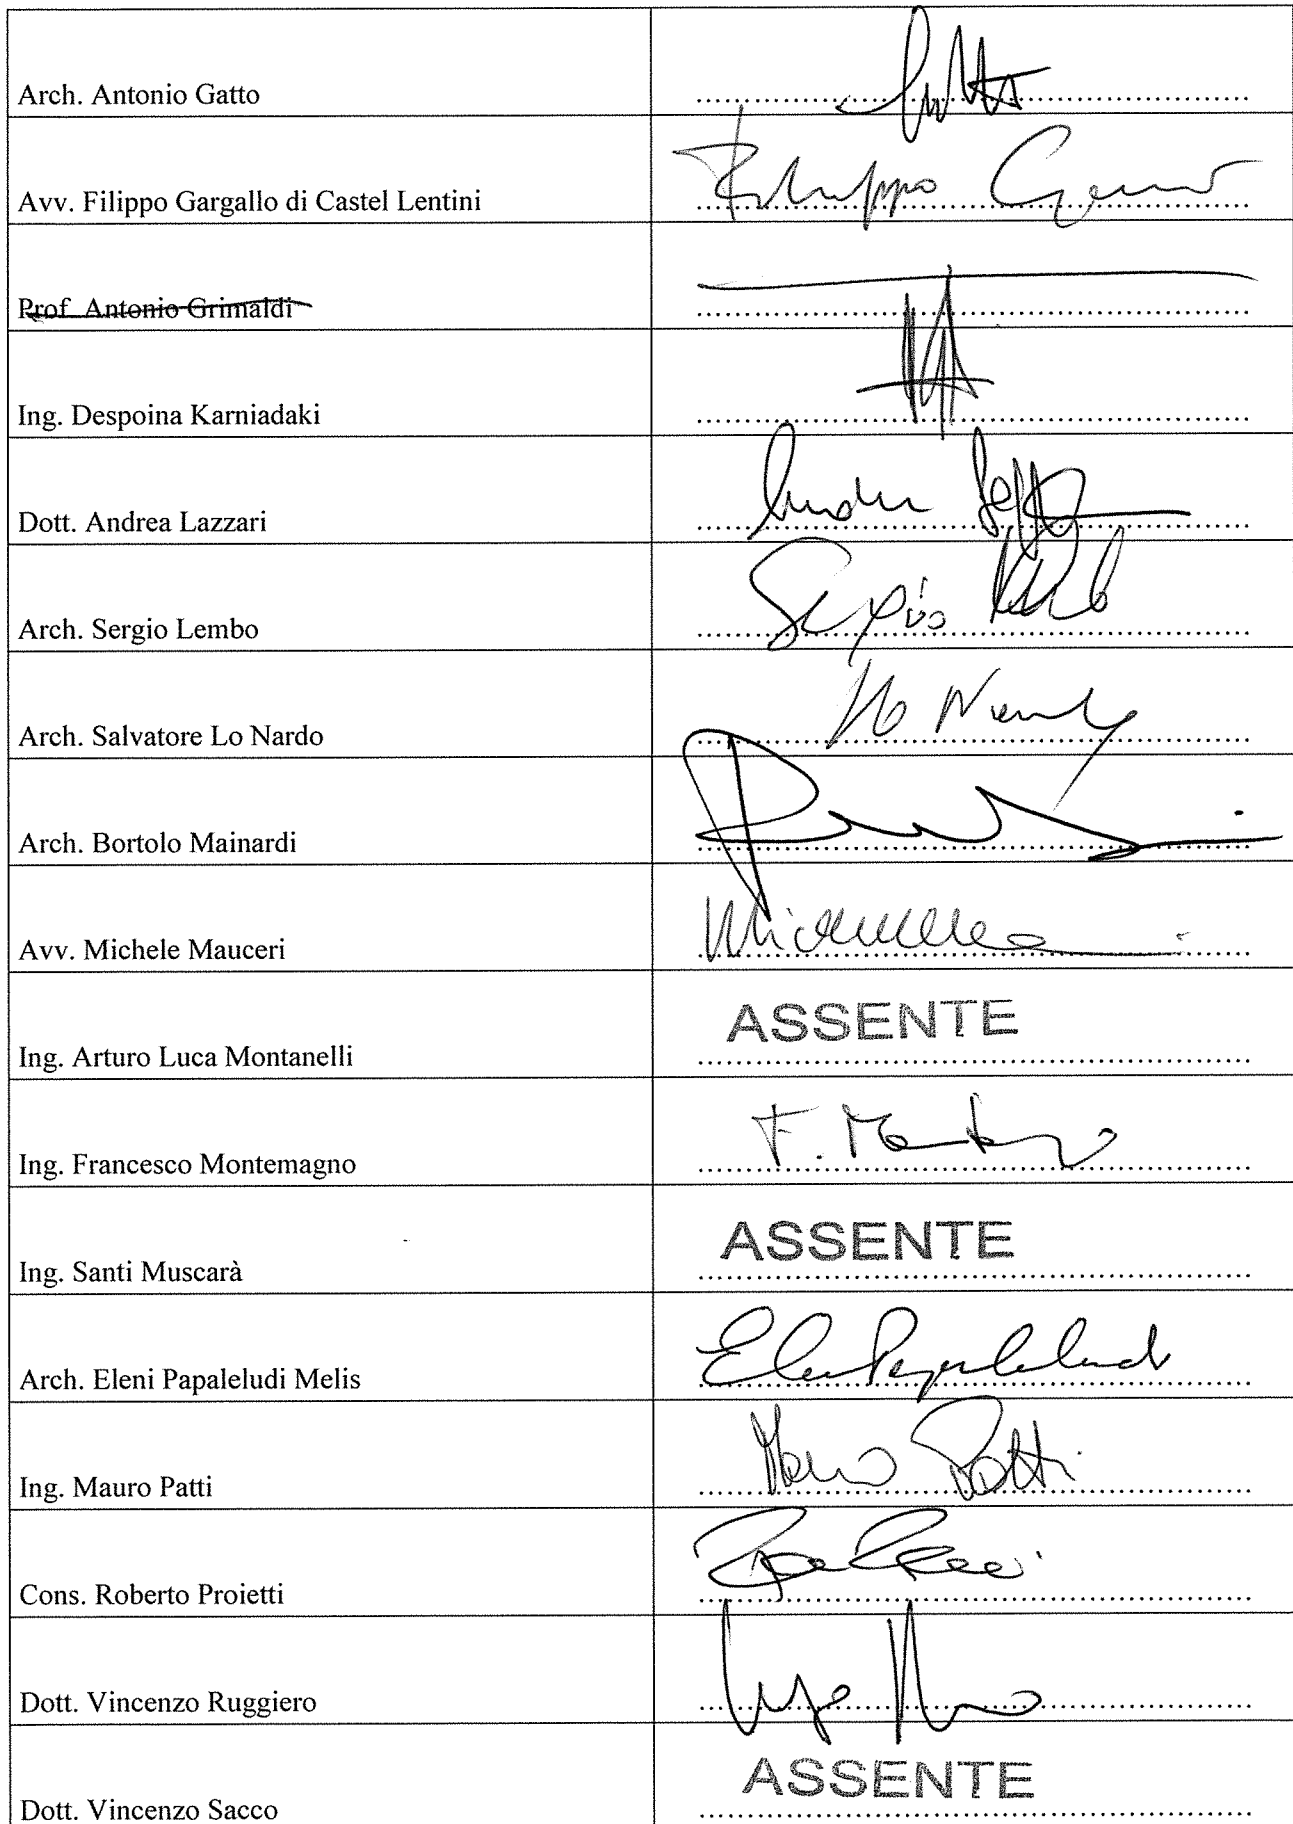 Arch. Antonio Gatto
Avv. Filippo Gargallo di Castel Lentini
Filippo
Prof. Antonio Grimaldi
Ing. Despoina Karniadaki
Dott. Andrea Lazzari
Andrea
Arch. Sergio Lembo
Sergio
Arch. Salvatore Lo Nardo
Lo Nardo
Arch. Bortolo Mainardi
Avv. Michele Mauceri
Ing. Arturo Luca Montanelli
ASSENTE
Ing. Francesco Montemagno
F.
Ing. Santi Muscarà
ASSENTE
Arch. Eleni Papaleludi Melis
Eleni Papaleludi
Ing. Mauro Patti
Mauro Patti
Cons. Roberto Proietti
Dott. Vincenzo Ruggiero
Dott. Vincenzo Sacco
ASSENTE